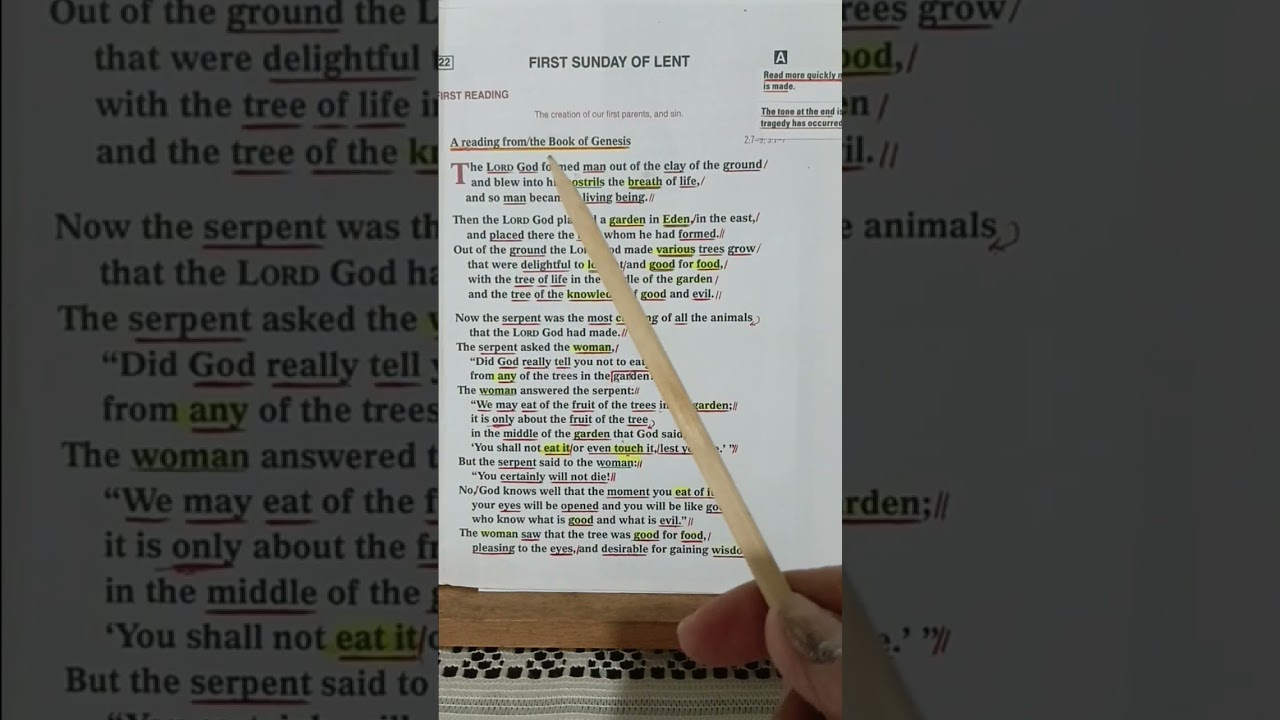 22
FIRST SUNDAY OF LENT
A
Read more quickly
is made.
The tone at the end
tragedy has occurred
FIRST READING
The creation of our first parents, and sin.
A reading from/the Book of Genesis
The LORD God formed man out of the clay of the ground/
and blew into nostrils the breath of life,/
and so man living being.//
Then the LORD God a garden in Eden,/in the east,/
and placed there the whom he had formed.//
Out of the ground the made various trees grow/
that were delightful to /and good for food,/
with the tree of life in the of the garden/
and the tree of the good and evil.//
Now the serpent was the most of all the animals
that the LORD God had made.//
The serpent asked the woman,/
“Did God really tell you not to eat
from any of the trees in the garden
The woman answered the serpent://
“We may eat of the fruit of the trees in garden;//
it is only about the fruit of the tree
in the middle of the garden that God said
‘You shall not eat it/or even touch it,/lest .’ ”//
But the serpent said to the woman://
“You certainly will not die!//
No,/God knows well that the moment you eat of
your eyes will be opened and you will be like
who know what is good and what is evil.”//
The woman saw that the tree was good for food,/
pleasing to the eyes,/and desirable for gaining